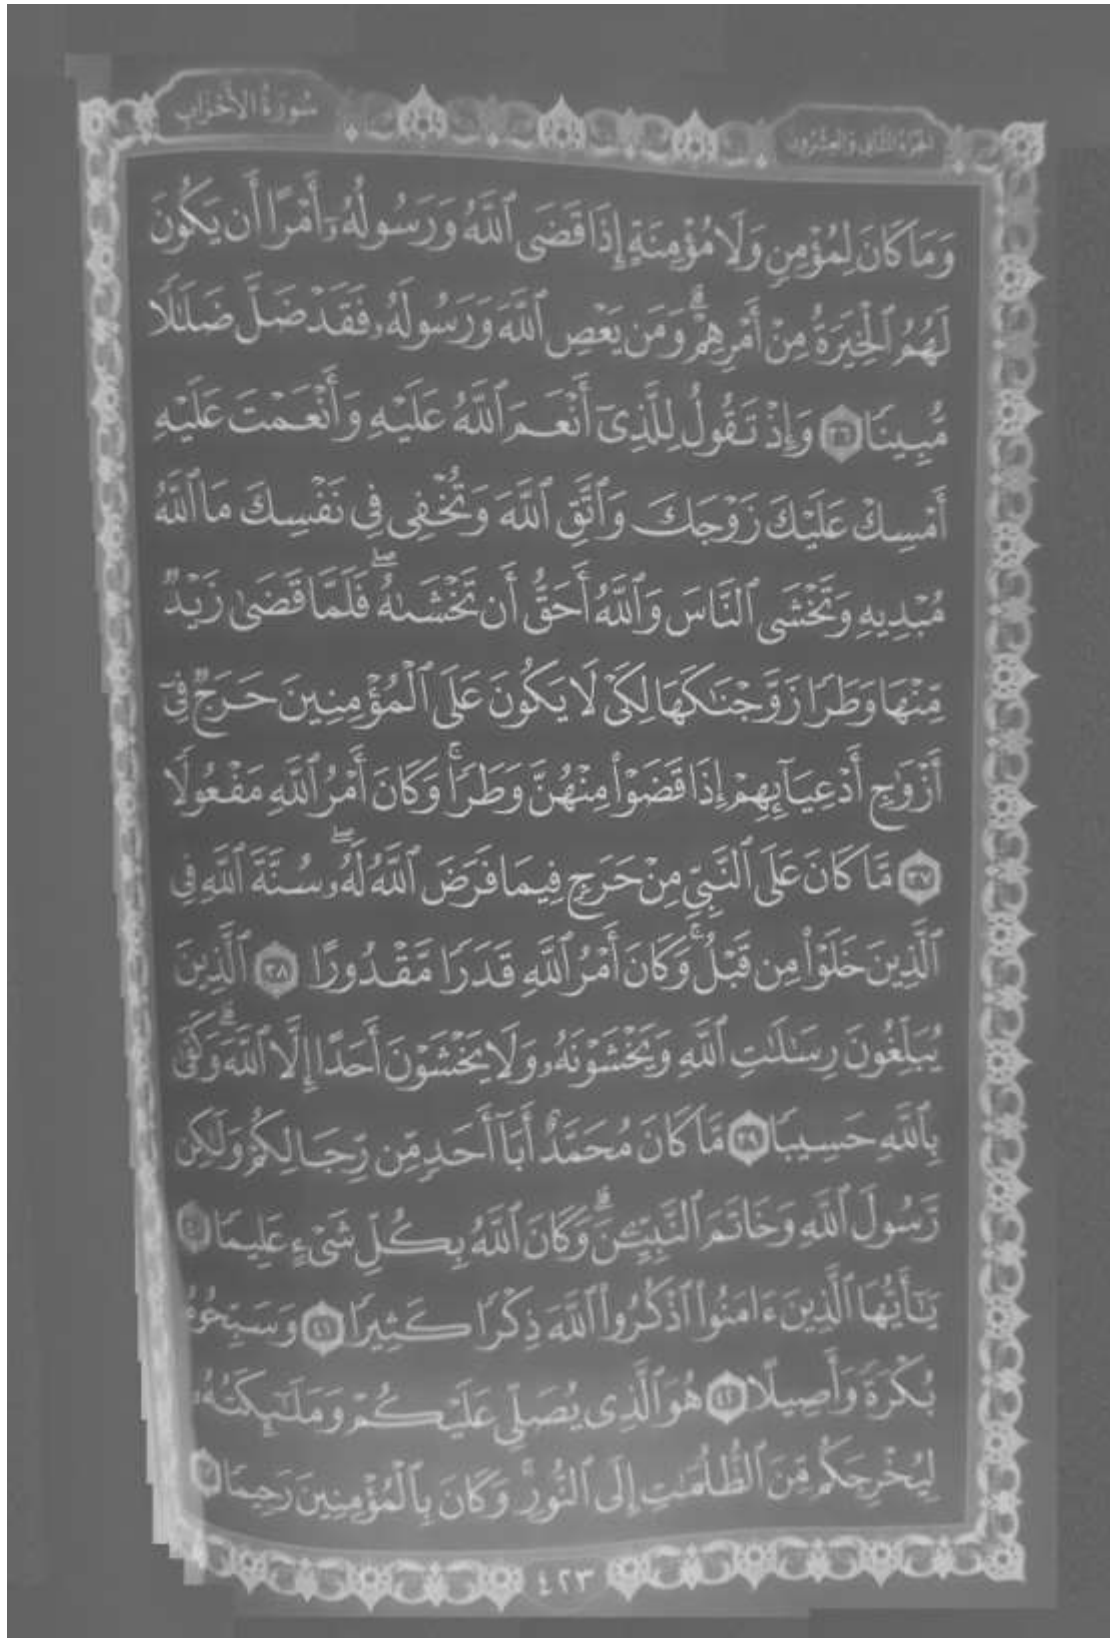 سُورَةُ الأَحْزَابِ
الجُزْءُ الثَّانِي وَالعِشْرُونَ
وَمَا كَانَ لِمُؤْمِنٍ وَلَا مُؤْمِنَةٍ إِذَا قَضَى ٱللَّهُ وَرَسُولُهُۥٓ أَمْرًا أَن يَكُونَ
لَهُمُ ٱلْخِيَرَةُ مِنْ أَمْرِهِمْ ۗ وَمَن يَعْصِ ٱللَّهَ وَرَسُولَهُۥ فَقَدْ ضَلَّ ضَلَٰلًا
مُّبِينًا ٣٦ وَإِذْ تَقُولُ لِلَّذِىٓ أَنْعَمَ ٱللَّهُ عَلَيْهِ وَأَنْعَمْتَ عَلَيْهِ
أَمْسِكْ عَلَيْكَ زَوْجَكَ وَٱتَّقِ ٱللَّهَ وَتُخْفِى فِى نَفْسِكَ مَا ٱللَّهُ
مُبْدِيهِ وَتَخْشَى ٱلنَّاسَ وَٱللَّهُ أَحَقُّ أَن تَخْشَىٰهُ ۖ فَلَمَّا قَضَىٰ زَيْدٌ
مِّنْهَا وَطَرًا زَوَّجْنَٰكَهَا لِكَىْ لَا يَكُونَ عَلَى ٱلْمُؤْمِنِينَ حَرَجٌ فِىٓ
أَزْوَٰجِ أَدْعِيَآئِهِمْ إِذَا قَضَوْا۟ مِنْهُنَّ وَطَرًا ۚ وَكَانَ أَمْرُ ٱللَّهِ مَفْعُولًا
٣٧ مَّا كَانَ عَلَى ٱلنَّبِىِّ مِنْ حَرَجٍ فِيمَا فَرَضَ ٱللَّهُ لَهُۥ ۖ سُنَّةَ ٱللَّهِ فِى
ٱلَّذِينَ خَلَوْا۟ مِن قَبْلُ ۚ وَكَانَ أَمْرُ ٱللَّهِ قَدَرًا مَّقْدُورًا ٣٨ ٱلَّذِينَ
يُبَلِّغُونَ رِسَٰلَٰتِ ٱللَّهِ وَيَخْشَوْنَهُۥ وَلَا يَخْشَوْنَ أَحَدًا إِلَّا ٱللَّهَ ۗ وَكَفَىٰ
بِٱللَّهِ حَسِيبًا ٣٩ مَّا كَانَ مُحَمَّدٌ أَبَآ أَحَدٍ مِّن رِّجَالِكُمْ وَلَٰكِن
رَّسُولَ ٱللَّهِ وَخَاتَمَ ٱلنَّبِيِّۦنَ ۗ وَكَانَ ٱللَّهُ بِكُلِّ شَىْءٍ عَلِيمًا ٤٠
يَٰٓأَيُّهَا ٱلَّذِينَ ءَامَنُوا۟ ٱذْكُرُوا۟ ٱللَّهَ ذِكْرًا كَثِيرًا ٤١ وَسَبِّحُوهُ
بُكْرَةً وَأَصِيلًا ٤٢ هُوَ ٱلَّذِى يُصَلِّى عَلَيْكُمْ وَمَلَٰٓئِكَتُهُۥ
لِيُخْرِجَكُم مِّنَ ٱلظُّلُمَٰتِ إِلَى ٱلنُّورِ ۚ وَكَانَ بِٱلْمُؤْمِنِينَ رَحِيمًا
٤٢٣